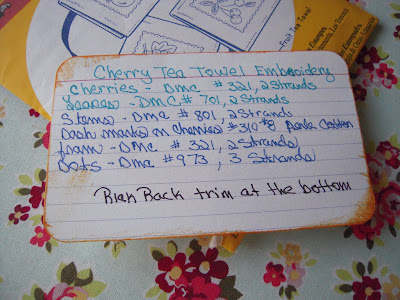 Fruit Tea Towel
Cherry Tea Towel Embroidery
Cherries - DMC #321, 2 Strands
Leaves - DMC # 701, 2 Strands
Stems - DMC # 801, 2 Strands
Dash marks on Cherries #310 #8 Perle Cotton
- DMC # 321, 2 Strands
Dots - DMC # 973, 3 Strands
Rick Rack trim at the bottom